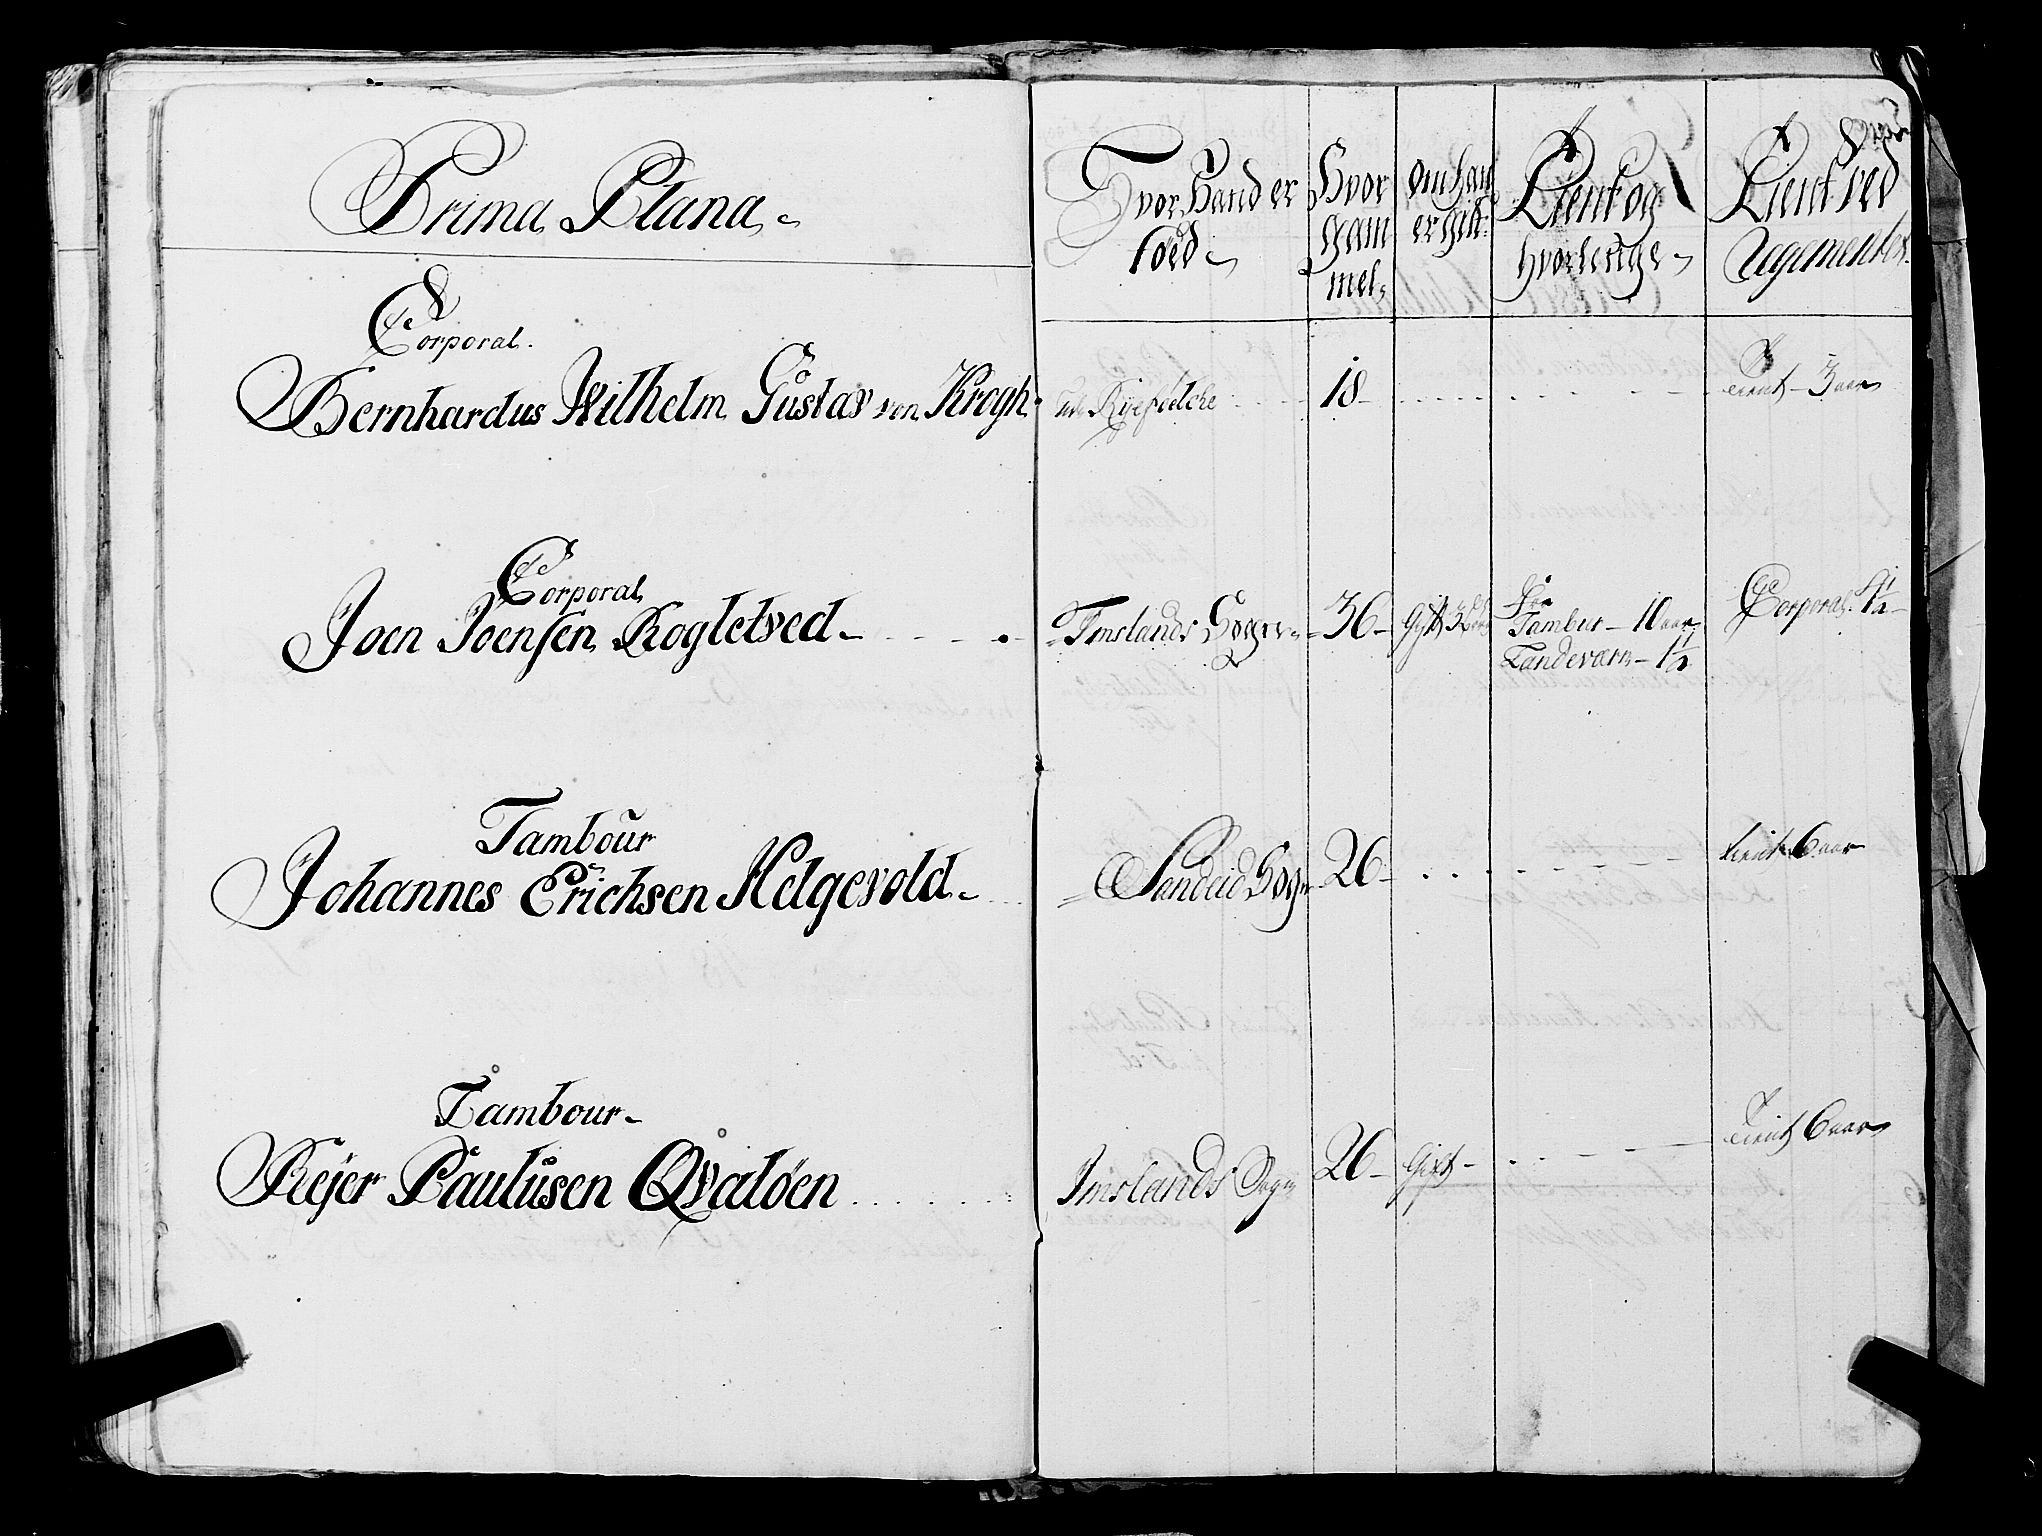 Prima Plana
Hvor Hand er
föed
Hvor
gam
mel
om han
er gift
Tient og
hvorlenge
Tient ved
Regimentet
Corporal.
Bernhardus Wilhelm Gustav von Krogh
Ryefylche
18
tient 3 aar
Corporal
Joen Joensen Rogletved
Imslands Sogn
36
Gift
Tambur 10 aar
Landeværn 1½
Corporal 1½
Tamboür
Johannes Erichsen Helgevold
Sandeid Sogn
26
tient 6 aar
Tambour
Rejer Paulüsen Qvaløen
Imslands Sogn
26
Gift
tient 6 aar